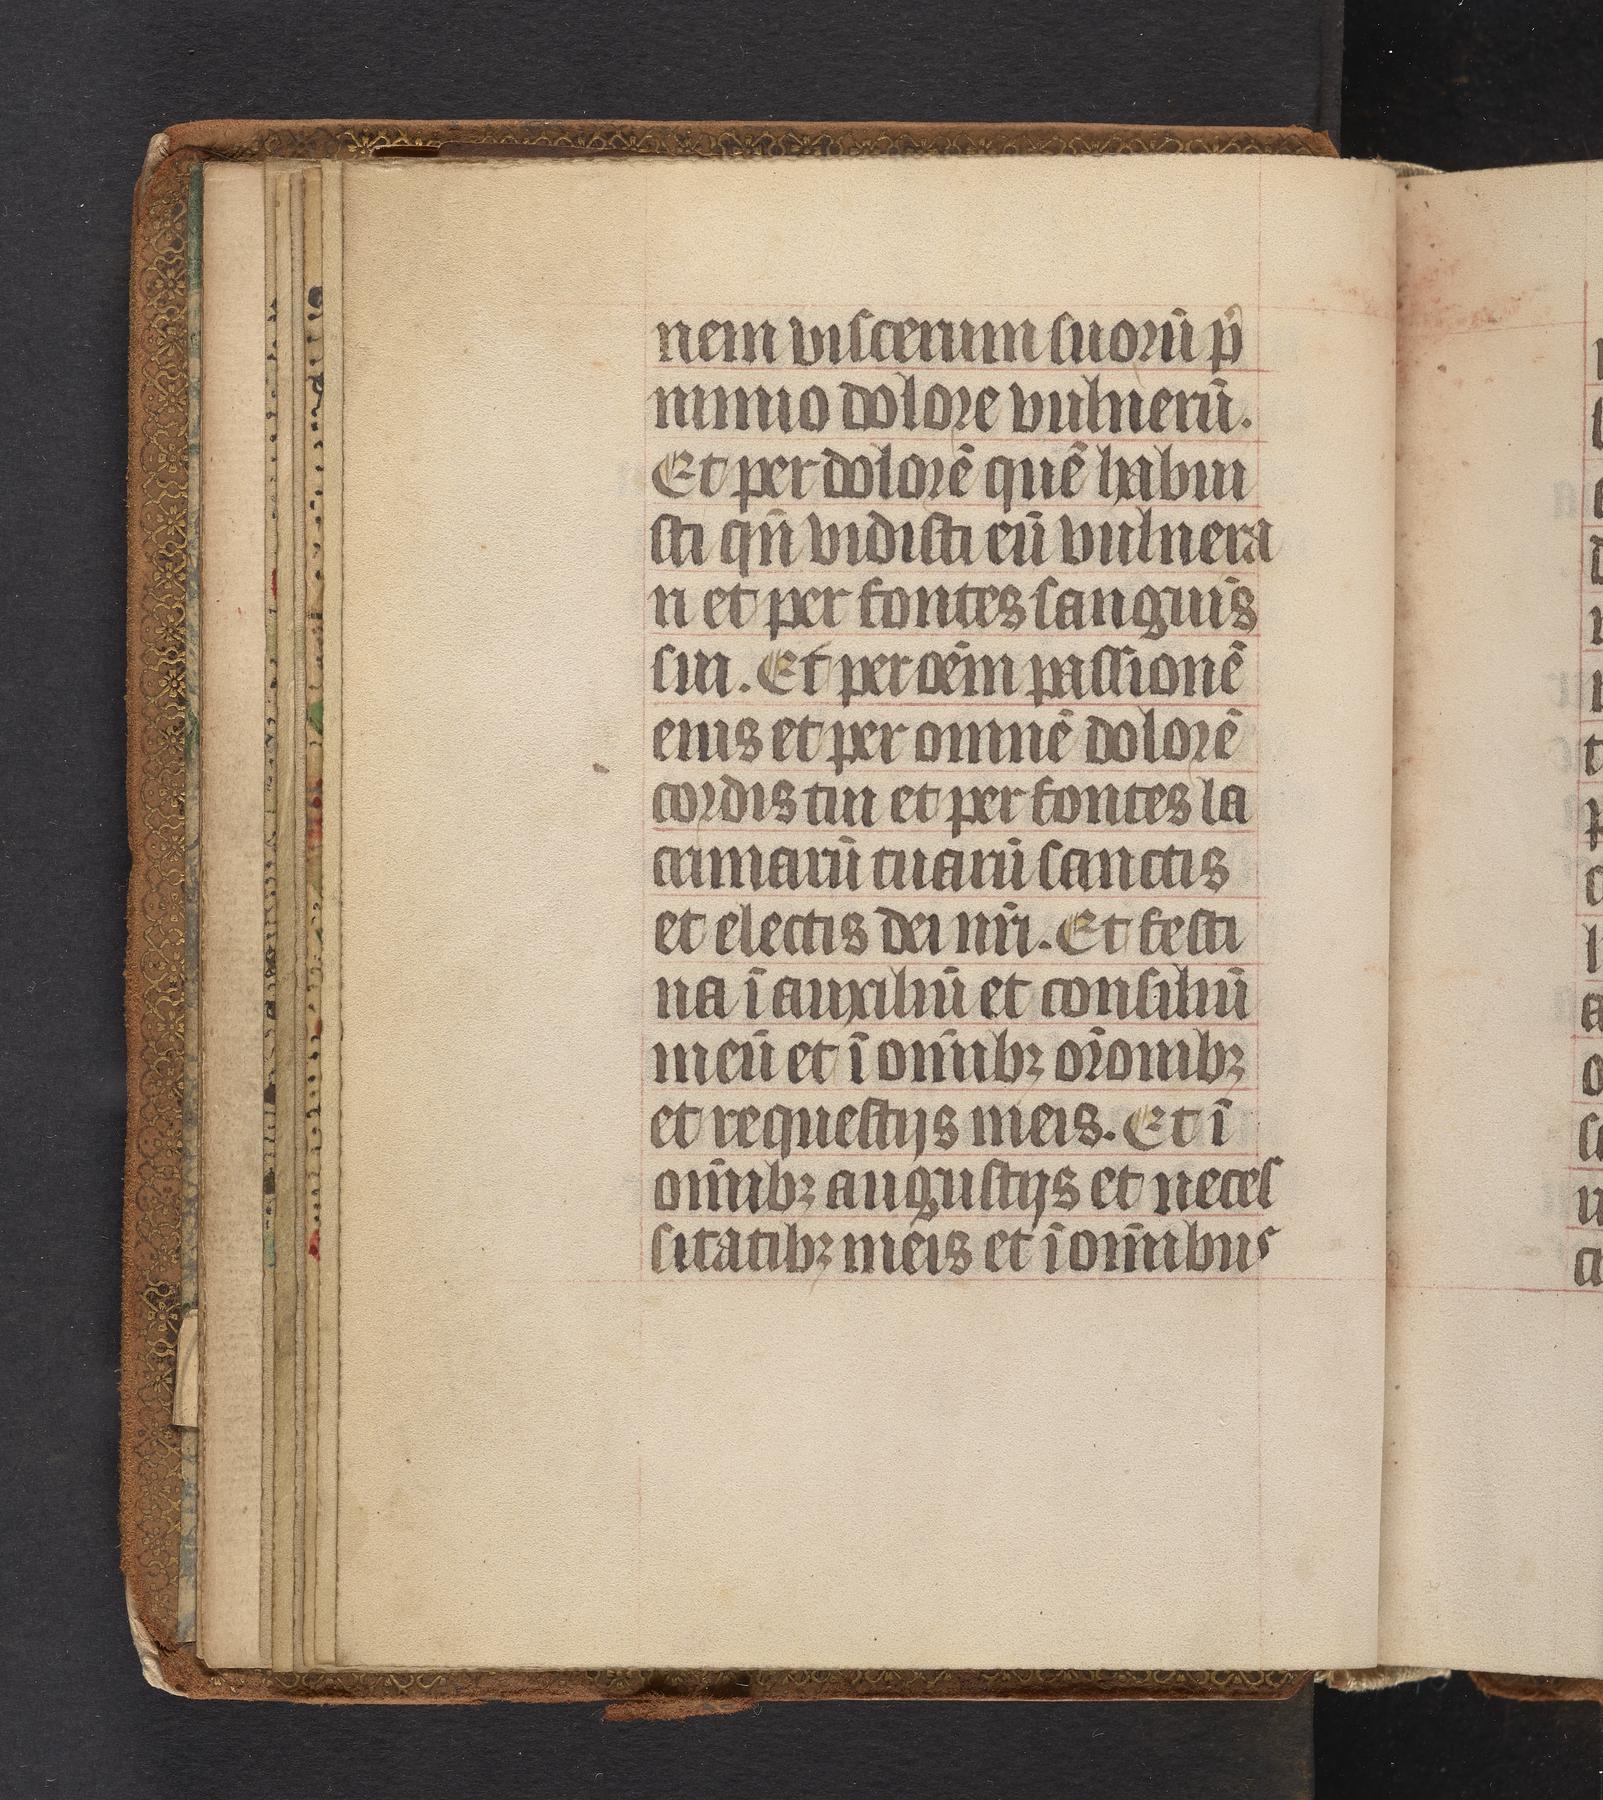 nem viscerum suorū p̄
nimio dolore vulnerū.
Et per dolorē quē habui
sti qn̄ vidisti eū vulnera
ri et per fontes sanguis̄
sui. Et per oēm passionē
eius et per omnē dolorē
cordis tui et per fontes la
crimarū tuarū sanctis
et electis dei nr̄i. Et festi
na ī auxiliū et consiliū
meū et ī om̄ibꝫ or̄onibꝫ
et requestijs meis. Et ī
om̄ibꝫ angustijs et neces
sitatibꝫ meis et ī om̄ibus